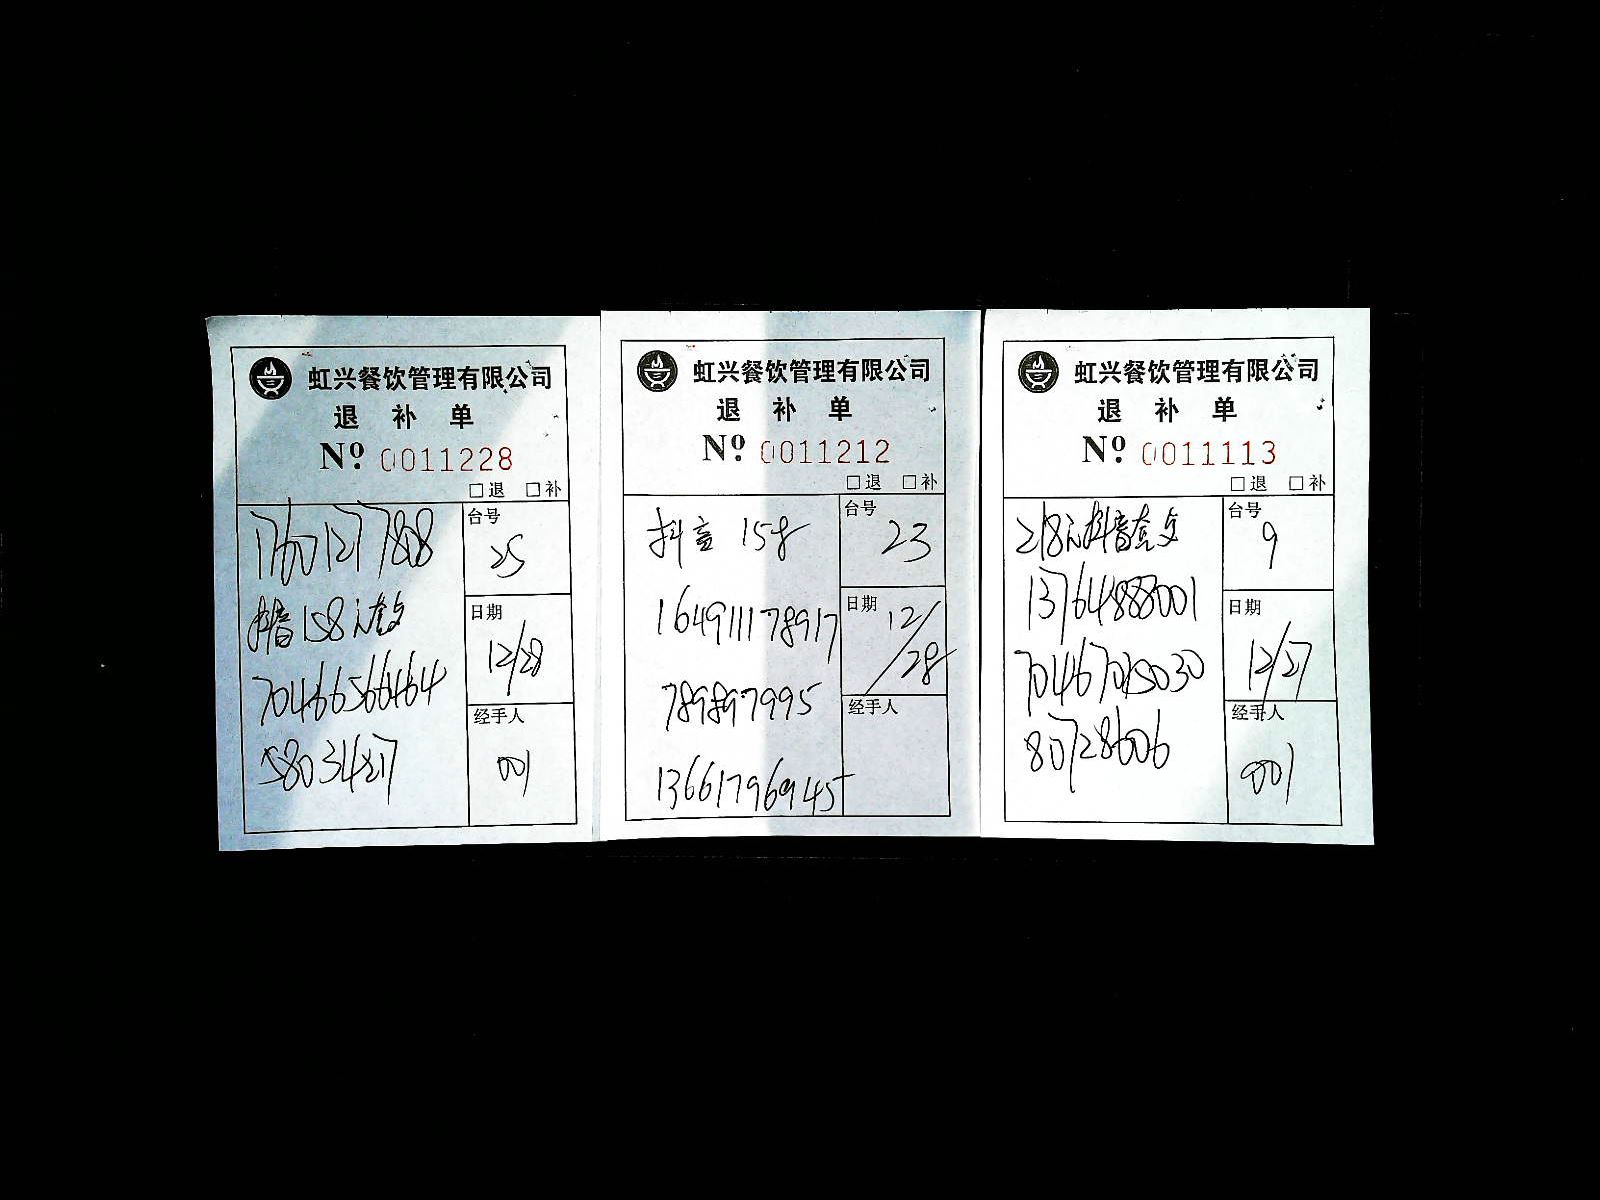 虹兴餐饮管理有限公司
退 补 单
Nº 0011228
□退 □补
17601277808
抖音158元套
70466566464
58034217
台号
25
日期
12/28
经手人
001
虹兴餐饮管理有限公司
退 补 单
Nº 0011212
□退 □补
抖音 158
164911178917
789897995
13661796945
台号
23
日期
12/28
经手人
虹兴餐饮管理有限公司
退 补 单
Nº 0011113
□退 □补
218元抖音套
13764888001
80728606
台号
9
日期
12/27
经手人
001